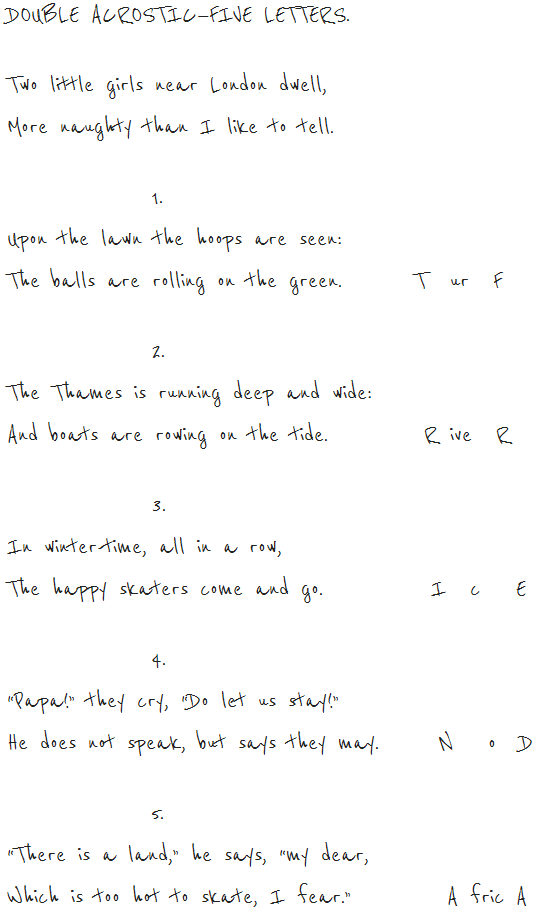 DOUBLE ACROSTIC-FIVE LETTERS.
Two little girls near London dwell,
More naughty than I like to tell.
1.
Upon the lawn the hoops are seen:
The balls are rolling on the green. T ur F
2.
The Thames is running deep and wide:
And boats are rowing on the tide. R ive R
3.
In winter-time, all in a row,
The happy skaters come and go. I c E
4.
"Papa!" they cry, "Do let us stay!"
He does not speak, but says they may. N o D
5.
"There is a land," he says, "my dear,
Which is too hot to skate, I fear." A fric A